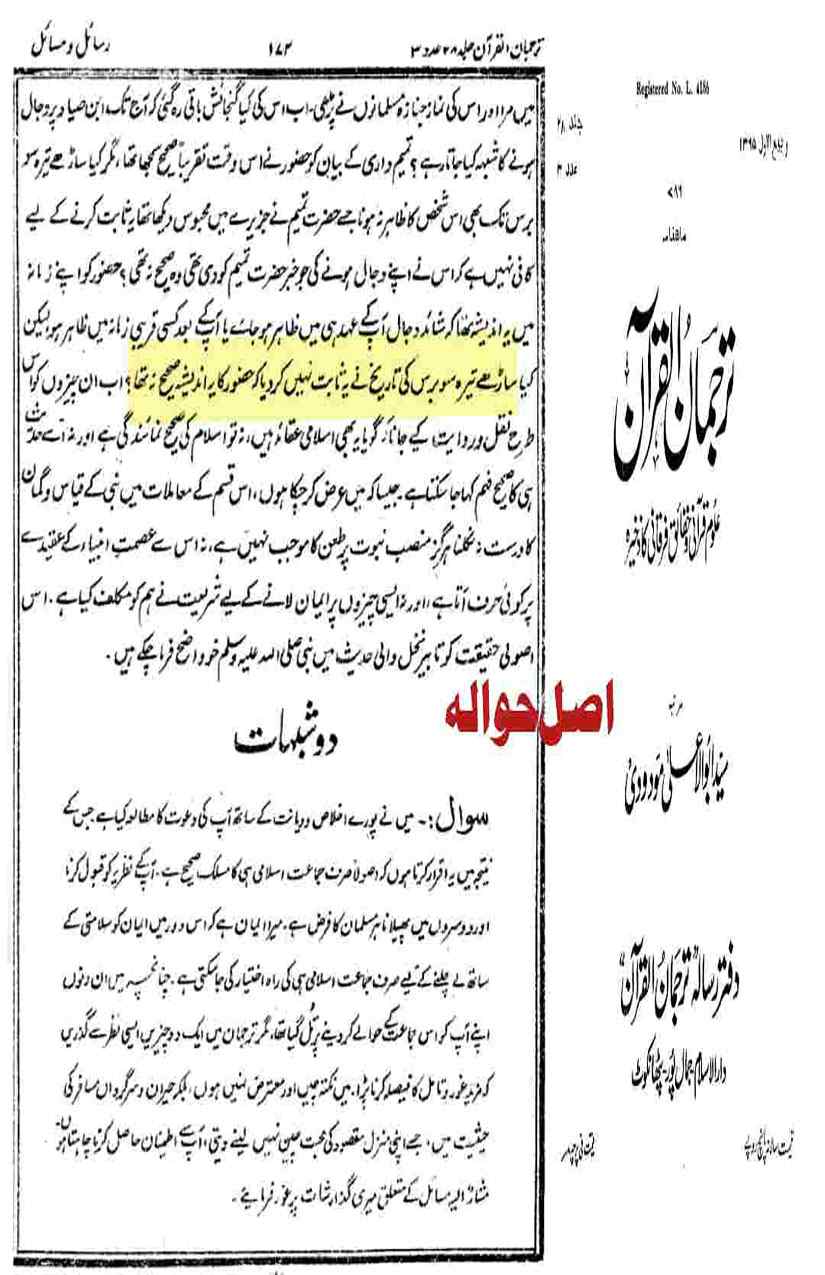 رسائل ومسائل
۱۷۳
ترجمان القرآن جلد ۲۸ عدد ۳
میں مرا اور اس کی نماز جنازہ مسلمانوں نے پڑھی۔ اب اس کی کیا گنجائش باقی رہ گئی کہ آج تک ابن صیاد پر دجال
ہونے کا شبہہ کیا جاتا رہے؟ تمیم داری کے بیان کو حضور نے اس وقت تقریباً صحیح سمجھا تھا، مگر کیا ساڑھے تیرہ سو
برس تک بھی اس شخص کا ظاہر نہ ہونا جسے حضرت تمیم نے جزیرے میں محبوس دیکھا تھا یہ ثابت کرنے کے لیے
کافی نہیں ہے کہ اس نے اپنے دجال ہونے کی جو خبر حضرت تمیم کو دی تھی وہ صحیح نہ تھی؟ حضور کو اپنے زمانہ
میں یہ اندیشہ تھا کہ شائد دجال آپ کے عہد ہی میں ظاہر ہو جائے یا آپ کے بعد کسی قریبی زمانہ میں ظاہر ہو لیکن
کیا ساڑھے تیرہ سو برس کی تاریخ نے یہ ثابت نہیں کر دیا کہ حضور کا یہ اندیشہ صحیح نہ تھا؟ اب ان چیزوں کو اس
طرح نقل و روایت کیے جانا کہ گویا یہ بھی اسلامی عقائد ہیں، نہ تو اسلام کی صحیح نمائندگی ہے اور نہ اسے حدیث
ہی کا صحیح فہم کہا جا سکتا ہے۔ جیسا کہ میں عرض کر چکا ہوں، اس قسم کے معاملات میں نبی کے قیاس و گمان
کا درست نہ نکلنا ہرگز منصب نبوت پر طعن کا موجب نہیں ہے، نہ اس سے عصمت انبیاء کے عقیدے
پر کوئی حرف آتا ہے، اور نہ ایسی چیزوں پر ایمان لانے کے لیے شریعت نے ہم کو مکلف کیا ہے۔ اس
اصولی حقیقت کو تابیر نخل والی حدیث میں نبی صلی اللہ علیہ وسلم خود واضح فرما چکے ہیں۔
اصل حوالہ
دو شبہات
سوال:۔ میں نے پورے اخلاص و دیانت کے ساتھ آپ کی دعوت کا مطالعہ کیا ہے جس کے
نتیجہ میں یہ اقرار کرتا ہوں کہ اصولاً صرف جماعت اسلامی ہی کا مسلک صحیح ہے۔ آپ کے نظریہ کو قبول کرنا
اور دوسروں میں پھیلانا ہر مسلمان کا فرض ہے۔ میرا ایمان ہے کہ اس دور میں ایمان کو سلامتی کے
ساتھ لے چلنے کے لیے صرف جماعت اسلامی ہی کی راہ اختیار کی جا سکتی ہے۔ چنانچہ میں ان دنوں
اپنے آپ کو اس جماعت کے حوالے کر دینے پر تُل گیا تھا، مگر ترجمان میں ایک دو چیزیں ایسی نظر سے گذریں
کہ مزید غور و تامل کا فیصلہ کرنا پڑا۔ میں نکتہ چیں اور معترض نہیں ہوں، بلکہ حیران و سرگرداں مسافر کی
حیثیت میں، جسے اپنی منزل مقصود کی محبت چین نہیں لینے دیتی، آپ سے اطمینان حاصل کرنا چاہتا ہوں
مشارٌ الیہ مسائل کے متعلق میری گذارشات پر غور فرمائیے۔
Registered No. L. 4186
جلد ۲۸
عدد ۳
ربیع الاول ۱۳۶۵
۷۸۶
ماہنامہ
ترجمان القرآن
علوم قرآنی و حقائق فرقانی کا ذخیرہ
مرتبہ
سید ابوالاعلیٰ مودودی
دفتر رسالہ ترجمان القرآن
دارالاسلام جمال پور۔ پٹھانکوٹ
قیمت سالانہ پانچ روپے
قیمت فی پرچہ